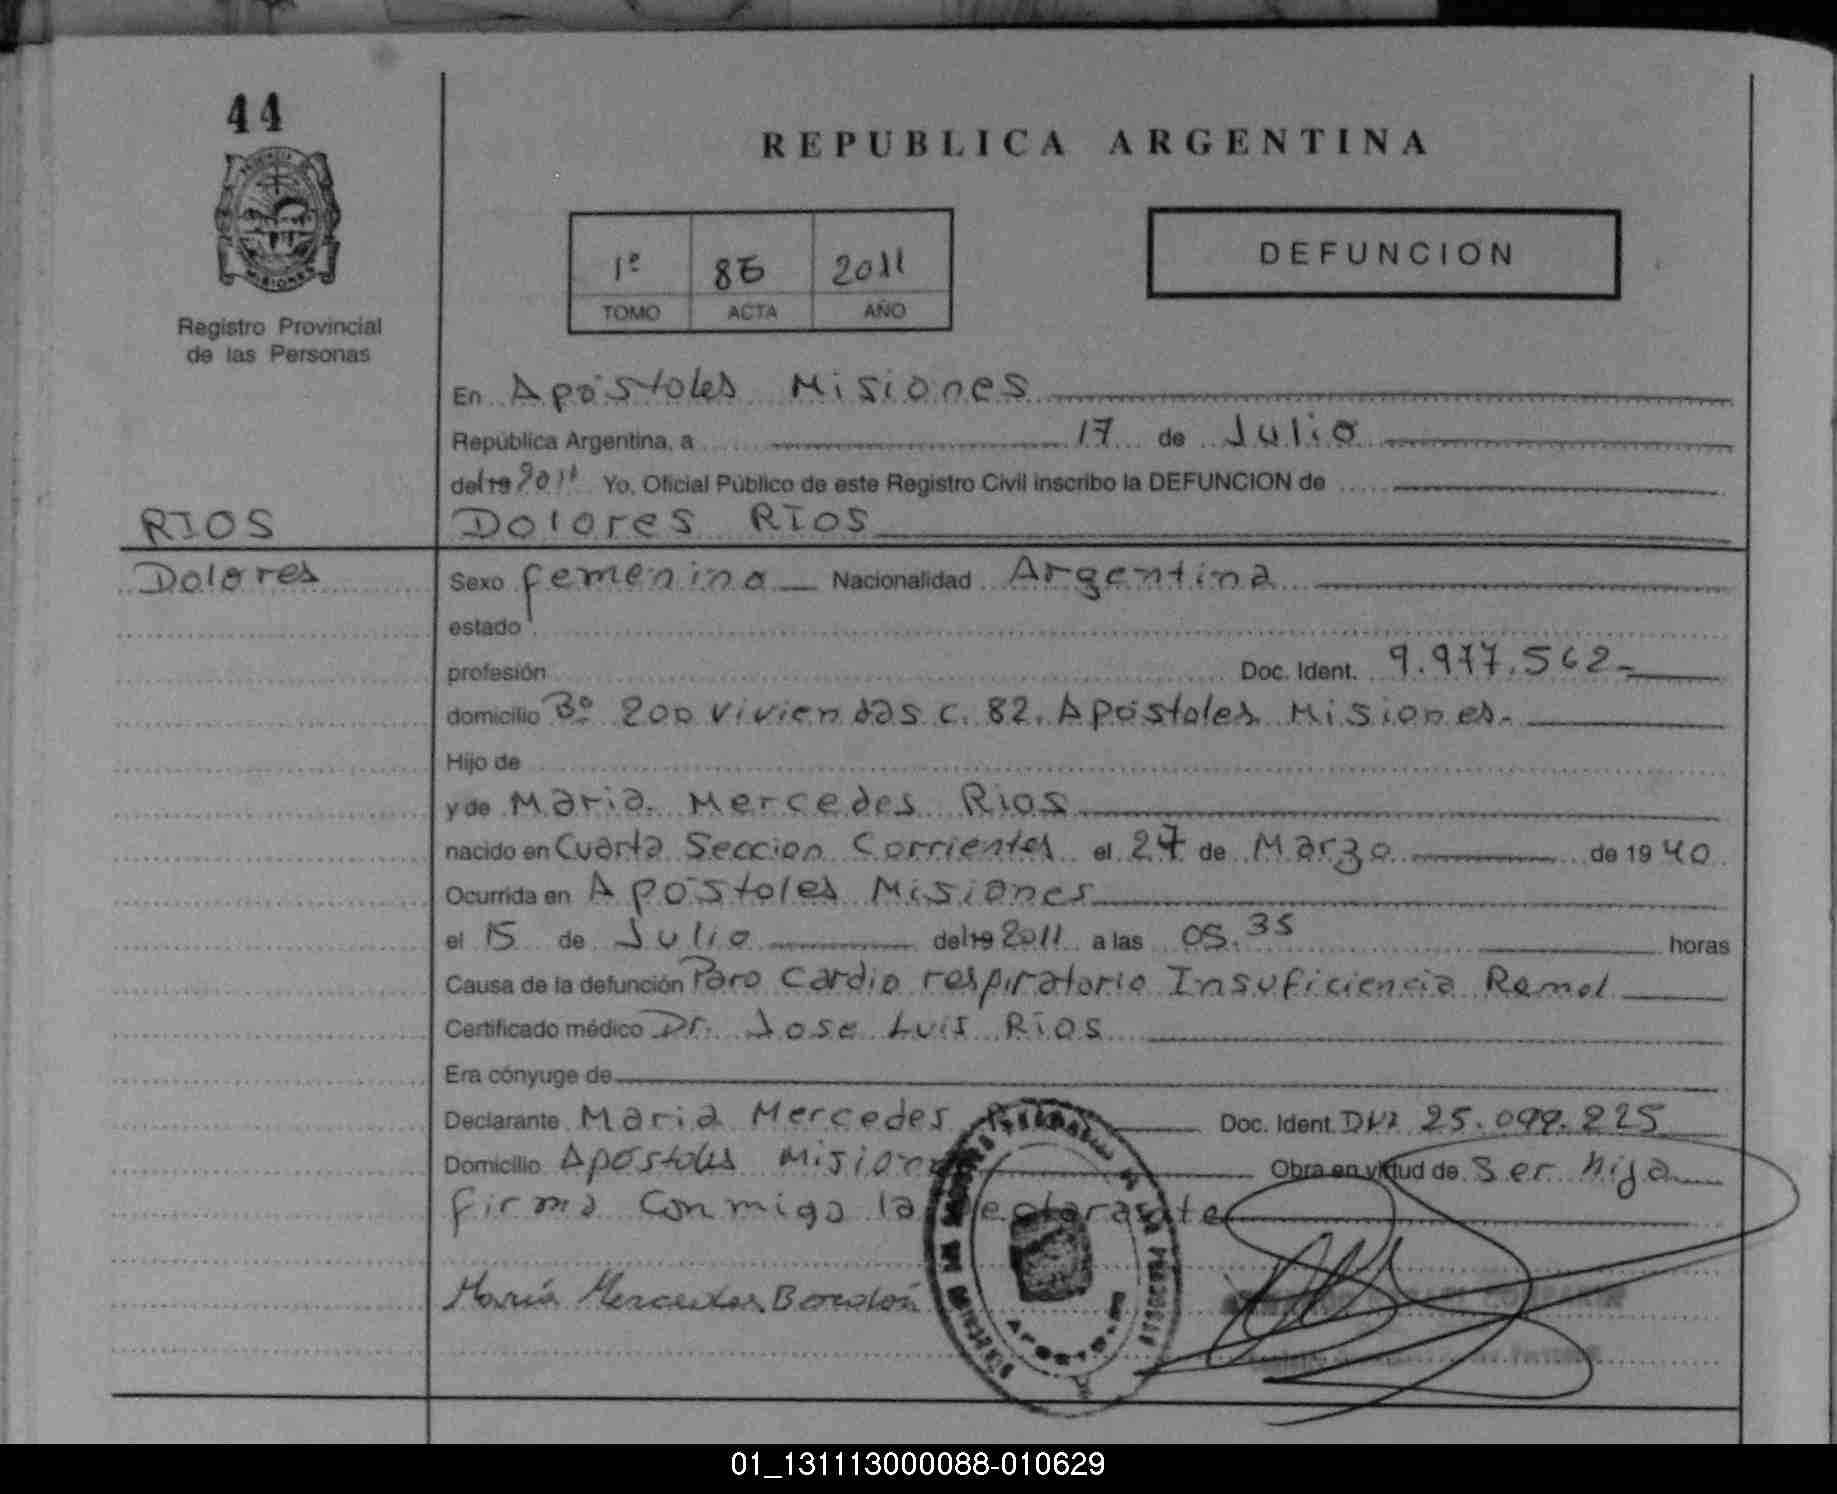 44
REPUBLICA ARGENTINA
MISIONES
1º 86 2011
TOMO ACTA AÑO
DEFUNCION
Registro Provincial
de las Personas
En Apóstoles Misiones
República Argentina, a 17 de Julio
del 19 2011 Yo, Oficial Público de este Registro Civil inscribo la DEFUNCION de
RIOS
Dolores RIOS
Dolores
Sexo femenino Nacionalidad Argentina
estado
profesión Doc. Ident. 9.977.562-
domicilio Bº 200 viviendas c. 82. Apóstoles Misiones.
Hijo de
y de Maria Mercedes Rios
nacido en Cuarta Seccion Corrientes el 27 de Marzo de 19 40
Ocurrida en Apóstoles Misiones
el 15 de Julio del 19 2011 a las 05.35 horas
Causa de la defunción Paro Cardio respiratorio Insuficiencia Remal
Certificado médico Dr. Jose Luis Rios
Era cónyuge de
Declarante Maria Mercedes Doc. Ident. DNI 25.099.225
Domicilio Apostoles Misiones Obra en virtud de Ser hija
firma Conmigo la declarante
María Mercedes Bordón
01_131113000088-010629